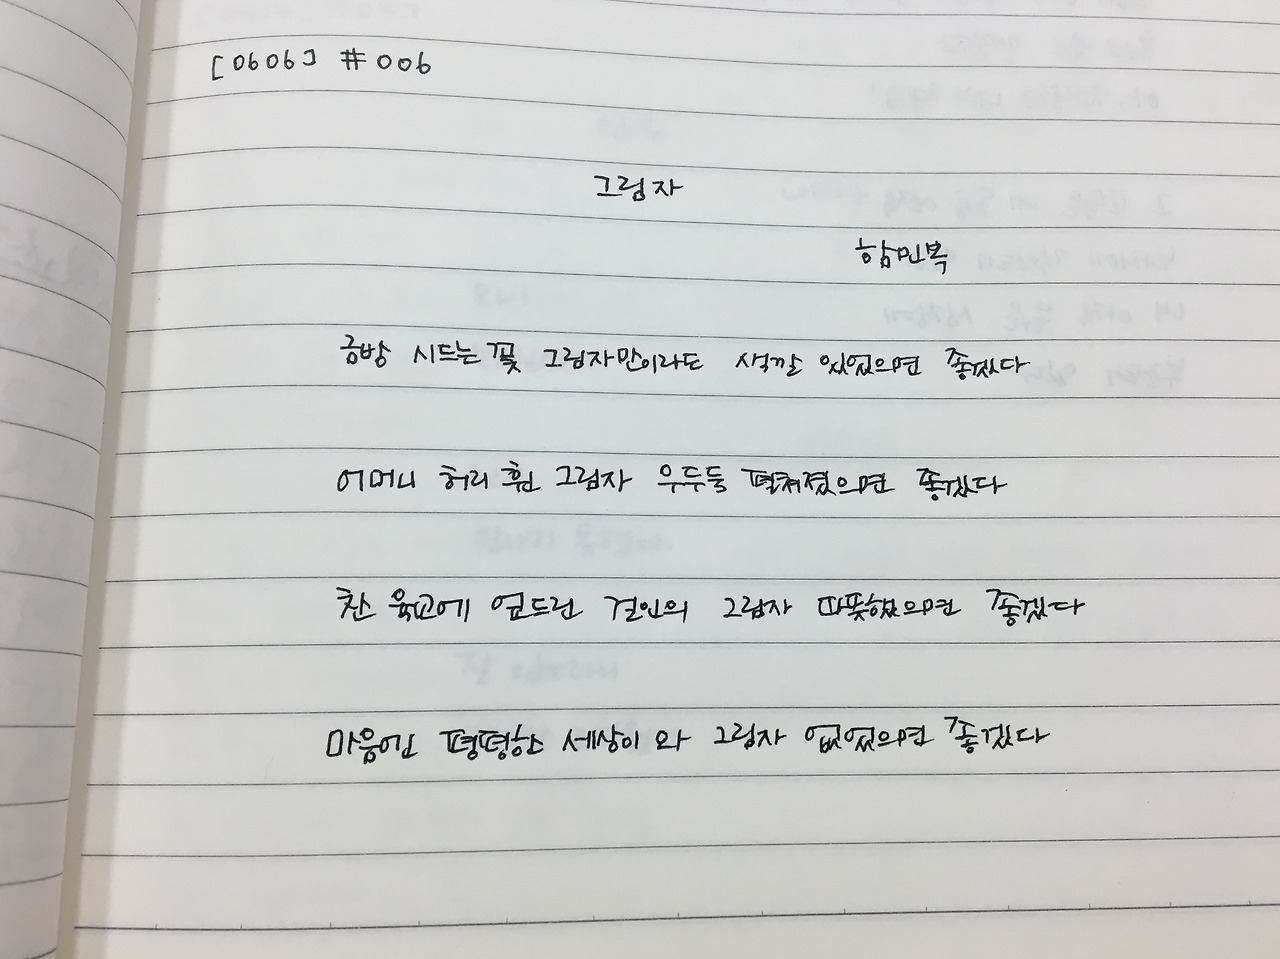 [0606] #006
그림자
함민복
금방 시드는 꽃 그림자만이라도 색깔 있었으면 좋겠다
어머니 허리 휜 그림자 우두둑 펼쳐졌으면 좋겠다
찬 육교에 엎드린 걸인의 그림자 따뜻했으면 좋겠다
마음엔 평평한 세상이 와 그림자 없었으면 좋겠다